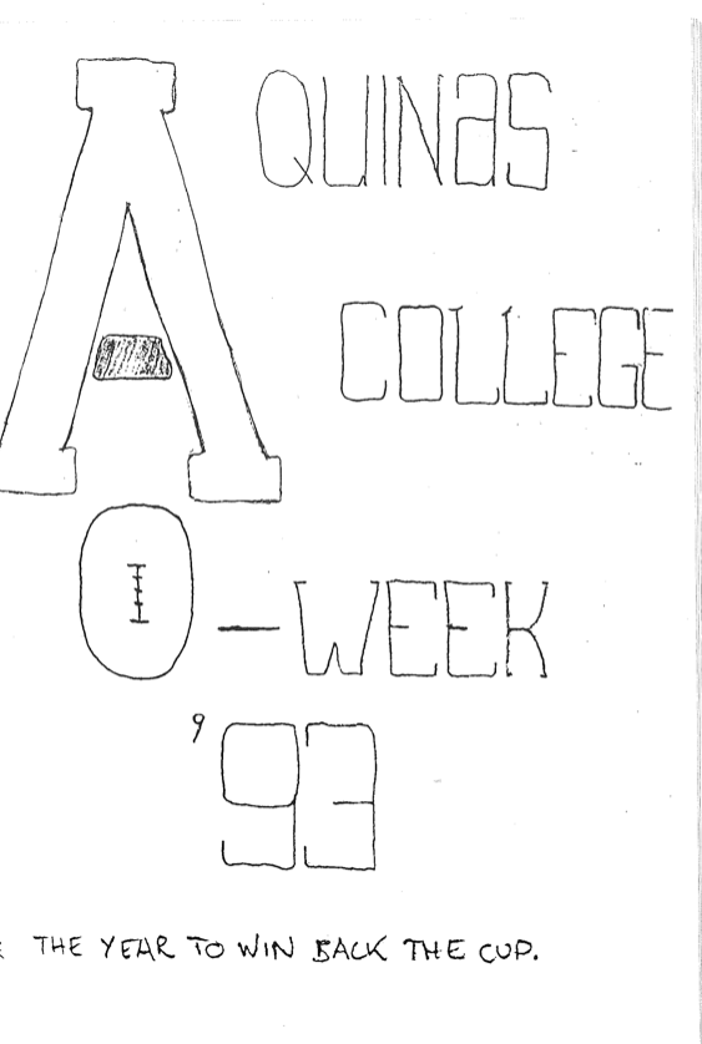 AQUINAS
COLLEGE
O-WEEK
'93
THE YEAR TO WIN BACK THE CUP.